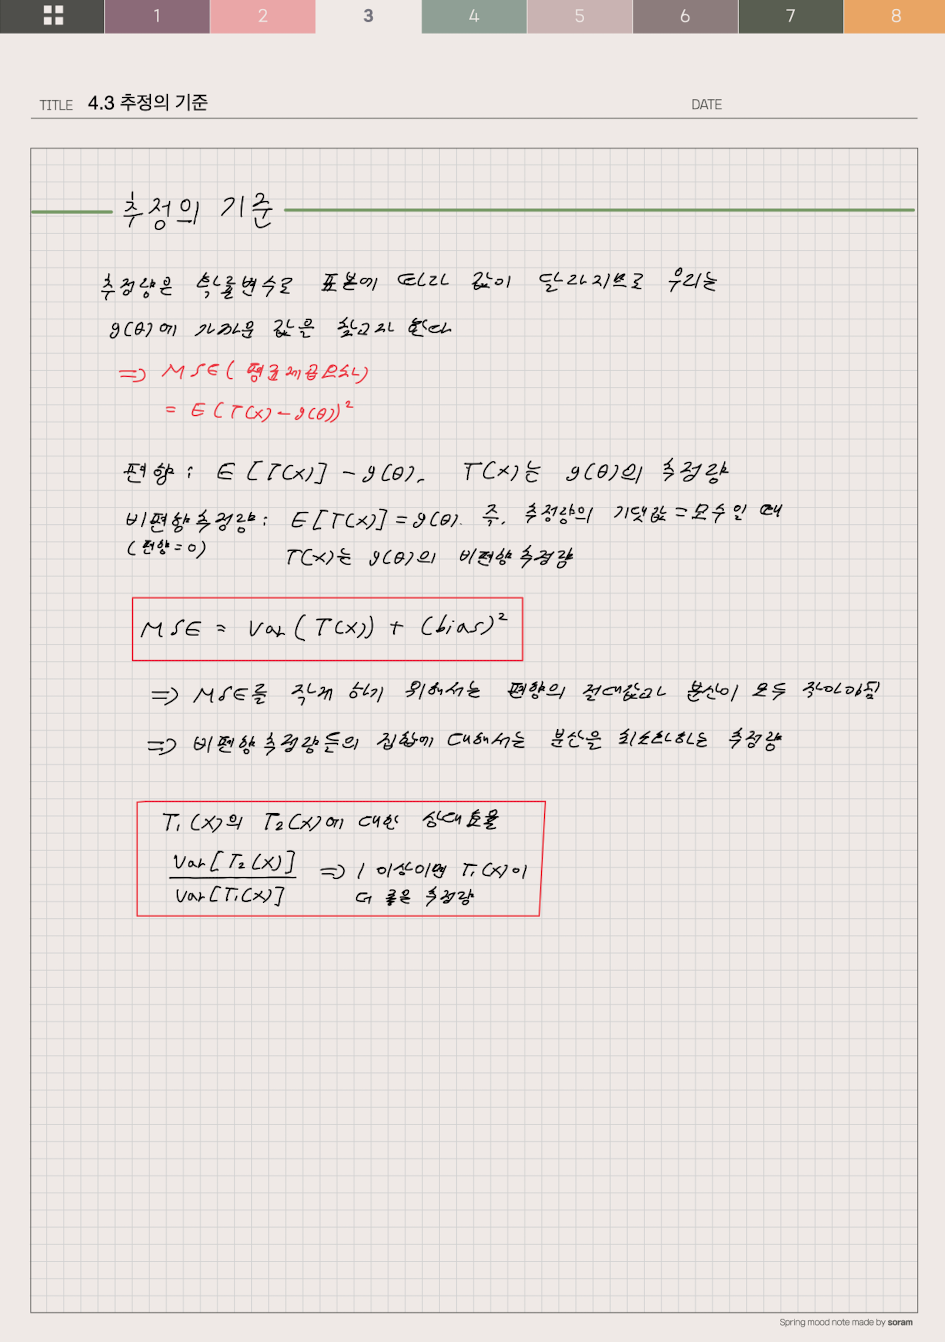 1 2 3 4 5 6 7 8
TITLE 4.3 추정의 기준 DATE
추정의 기준
추정량은 확률변수로 표본에 따라 값이 달라지므로 우리는
g(θ)에 가까운 값을 찾고자 한다
⇒ MSE(평균제곱오차)
= E(T(X)-g(θ))²
편향 : E[T(X)] - g(θ), T(X)는 g(θ)의 추정량
비편향추정량 : E[T(X)] = g(θ). 즉, 추정량의 기댓값 = 모수 인 때
(편향=0)
T(X)는 g(θ)의 비편향추정량
MSE = Var(T(X)) + (bias)²
⇒ MSE를 작게 하기 위해서는 편향의 절대값과 분산이 모두 작아야됨
⇒ 비편향추정량들의 집합에 대해서는 분산을 최소화하는 추정량
T₁(X)의 T₂(X)에 대한 상대효율
Var[T₂(X)]
⇒ 1 이상이면 T₁(X)이
Var[T₁(X)]
더 좋은 추정량
Spring mood note made by soram